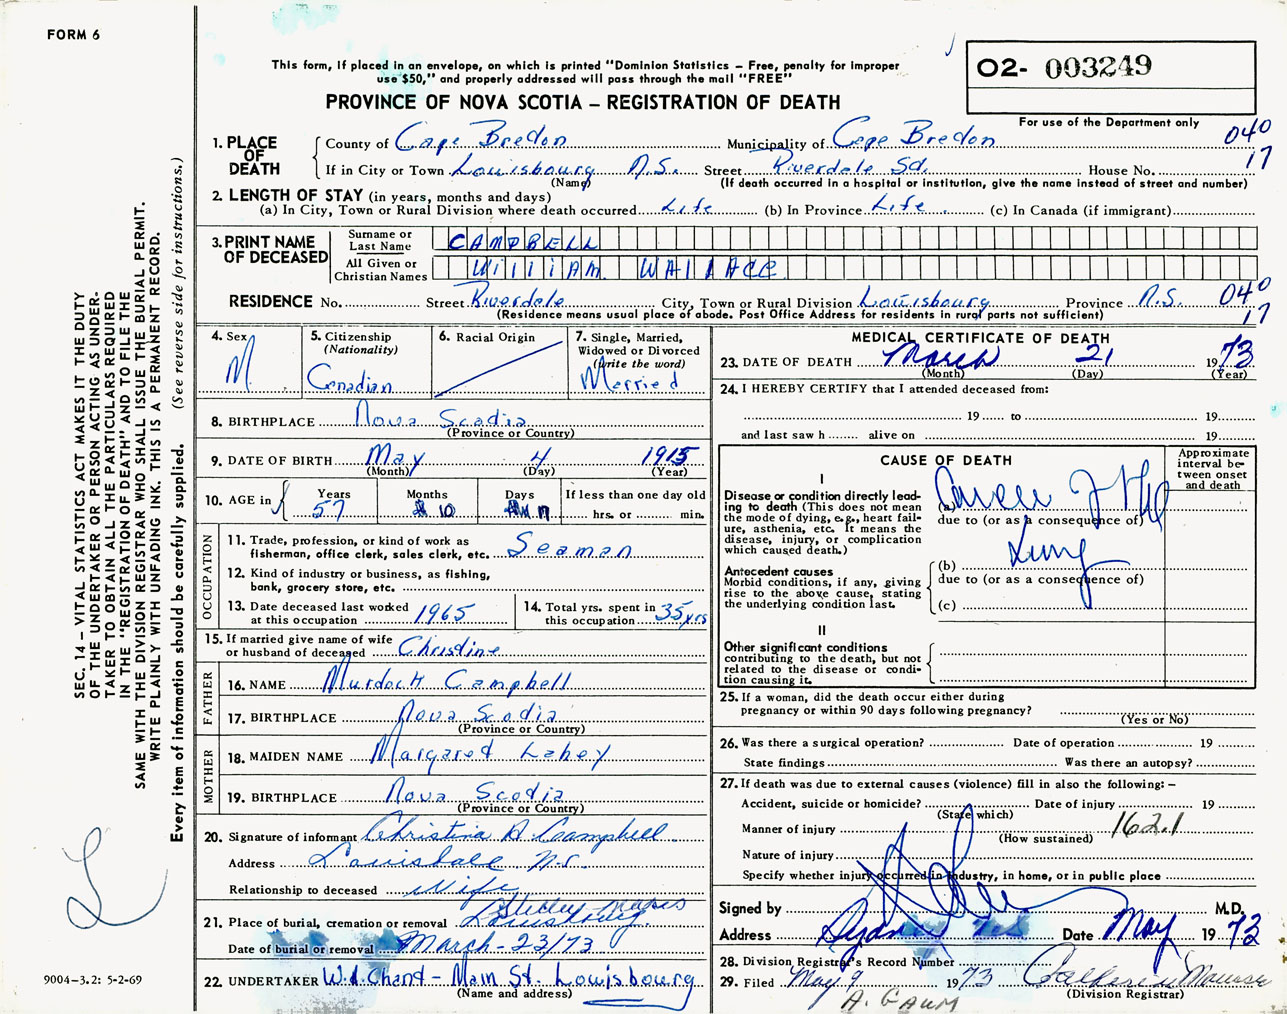 FORM 6
This form, if placed in an envelope, on which is printed "Dominion Statistics – Free, penalty for improper
use $50," and properly addressed will pass through the mail "FREE"
PROVINCE OF NOVA SCOTIA – REGISTRATION OF DEATH
02- 003249
For use of the Department only
1. PLACE OF DEATH
County of Cape Bredon Municipality of Cape Bredon 040
If in City or Town Louisbourg N.S. Street Riverdale Sd. House No. 17
(Name) (If death occurred in a hospital or institution, give the name instead of street and number)
2. LENGTH OF STAY (in years, months and days)
(a) In City, Town or Rural Division where death occurred Life (b) In Province Life (c) In Canada (if immigrant)
3. PRINT NAME OF DECEASED
Surname or Last Name CAMPBELL
All Given or Christian Names WilliAM WALLACE
RESIDENCE No. Street Riverdale City, Town or Rural Division Louisbourg Province N.S. 040
(Residence means usual place of abode. Post Office Address for residents in rural parts not sufficient) 17
4. Sex M
5. Citizenship (Nationality) Canadian
6. Racial Origin
7. Single, Married, Widowed or Divorced (write the word) Married
8. BIRTHPLACE Nova Scodia
(Province or Country)
9. DATE OF BIRTH May 4 1915
(Month) (Day) (Year)
10. AGE in Years 57 Months 10 Days 17 If less than one day old
hrs. or min.
OCCUPATION
11. Trade, profession, or kind of work as
fisherman, office clerk, sales clerk, etc. Seaman
12. Kind of industry or business, as fishing,
bank, grocery store, etc.
13. Date deceased last worked at this occupation 1965
14. Total yrs. spent in this occupation 35 yrs
15. If married give name of wife
or husband of deceased Christine
FATHER
16. NAME Murdock Campbell
17. BIRTHPLACE Nova Scodia
(Province or Country)
MOTHER
18. MAIDEN NAME Margared Lahey
19. BIRTHPLACE Nova Scodia
(Province or Country)
20. Signature of informant Christina A. Campbell
Address N.S.
Relationship to deceased Wife
21. Place of burial, cremation or removal Louisbourg.
Date of burial or removal March-23/73
22. UNDERTAKER W.J. Chant – Main St. Louisbourg
(Name and address)
MEDICAL CERTIFICATE OF DEATH
23. DATE OF DEATH March 21 1973
(Month) (Day) (Year)
24. I HEREBY CERTIFY that I attended deceased from:
19 to 19
and last saw h alive on 19
CAUSE OF DEATH
Approximate interval between onset and death
I
Disease or condition directly leading to death (This does not mean the mode of dying, e.g., heart failure, asthenia, etc. It means the disease, injury, or complication which caused death.)
(a) Cancer of the
due to (or as a consequence of)
Lung
Antecedent causes
Morbid conditions, if any, giving rise to the above cause, stating the underlying condition last.
(b)
due to (or as a consequence of)
(c)
II
Other significant conditions
contributing to the death, but not related to the disease or condition causing it.
25. If a woman, did the death occur either during
pregnancy or within 90 days following pregnancy?
(Yes or No)
26. Was there a surgical operation? Date of operation 19
State findings Was there an autopsy?
27. If death was due to external causes (violence) fill in also the following: –
Accident, suicide or homicide? Date of injury 19
(State which)
Manner of injury 162.1
(How sustained)
Nature of injury
Specify whether injury occurred in industry, in home, or in public place
Signed by M.D.
Address Sydney N.S. Date May 1973
28. Division Registrar's Record Number
29. Filed May 9 1973
(Division Registrar)
A. GAUM
SEC. 14 – VITAL STATISTICS ACT MAKES IT THE DUTY
OF THE UNDERTAKER OR PERSON ACTING AS UNDER-
TAKER TO OBTAIN ALL THE PARTICULARS REQUIRED
IN THE "REGISTRATION OF DEATH" AND TO FILE THE
SAME WITH THE DIVISION REGISTRAR WHO SHALL ISSUE THE BURIAL PERMIT.
WRITE PLAINLY WITH UNFADING INK. THIS IS A PERMANENT RECORD.
Every item of information should be carefully supplied. (See reverse side for instructions.)
9004-3.2: 5-2-69